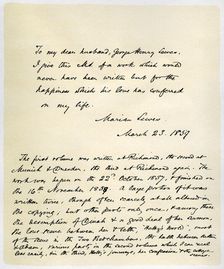 To my dear husband, George Henry Lewes,
I give this MS. of a work which would
never have been written but for the
happiness which his love has conferred
on my life.
Marian Lewes
March 23. 1859
The first volume was written at Richmond, the second at
Munich & Dresden, the third at Richmond again. The
work was begun on the 22nd October 1857, & finished on
the 16th November 1858. A large portion of it was
written twice, though often scarcely at all altered in
the copying; but other parts only once, & among these
the description of Dinah & a good deal of her sermon,
the love scene between her & Seth, "Hetty's World",
of the scene in the Two Poor